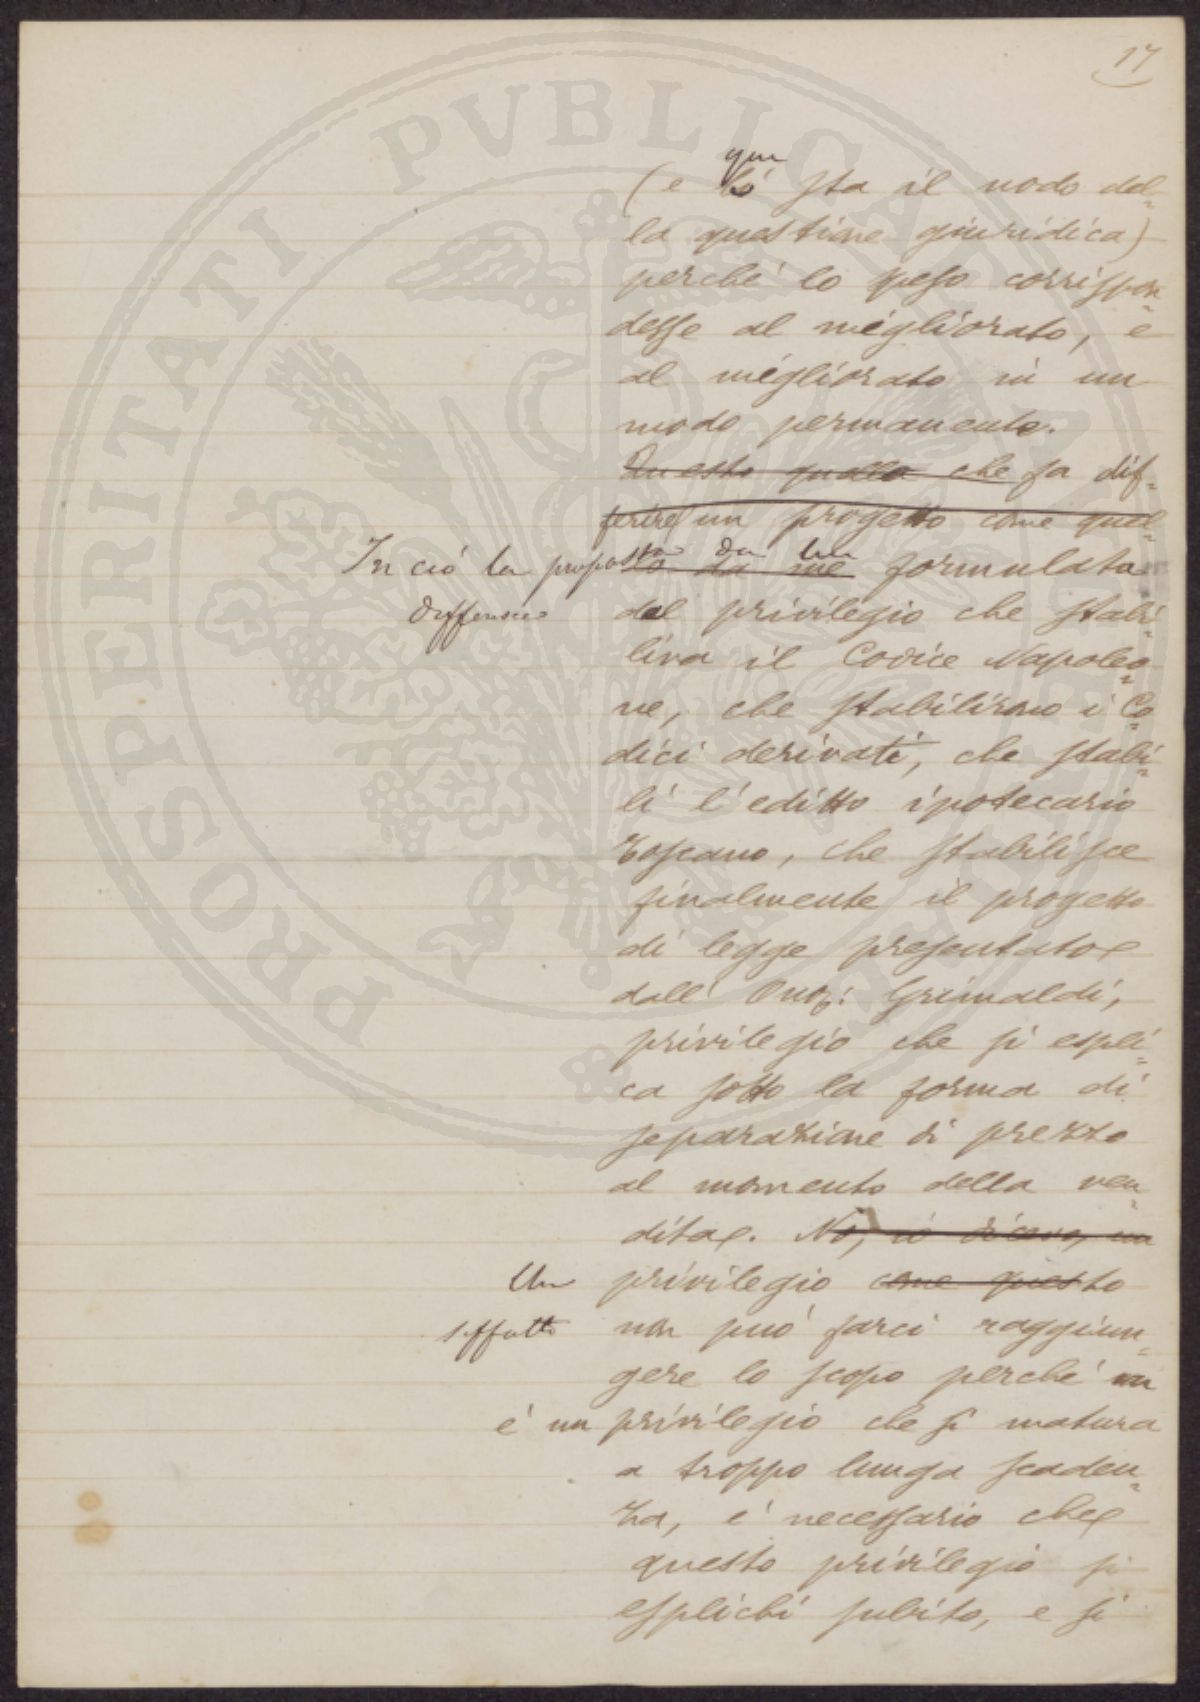 17
PROSPERITATI PVBLICAE AVGENDAE
qui
(e lì sta il nodo del=
la questione giuridica)
perchè lo speso corrispon=
desse al migliorato, e
al migliorato in un
modo permanente.
Questo quello che fa dif=
ferire un progetto come quel=
In ciò la proposta da lui
lo da me formulata
differisce del privilegio che stabi=
liva il Codice Napoleo=
ne, che stabilirono i Co=
dici derivati, che stabi=
lì l'editto ipotecario
toscano, che stabilisce
finalmente il progetto
di legge presentato
dall' Onor: Grimaldi,
privilegio che si espli=
ca sotto la forma di
separazione di prezzo
al momento della ven=
dita. No, io dicevo, un
Un privilegio come questo
siffatto non può farci raggiun=
gere lo scopo perchè
è un privilegio che si matura
a troppo lunga scaden=
za, è necessario che
questo privilegio si
esplichi subito, e si